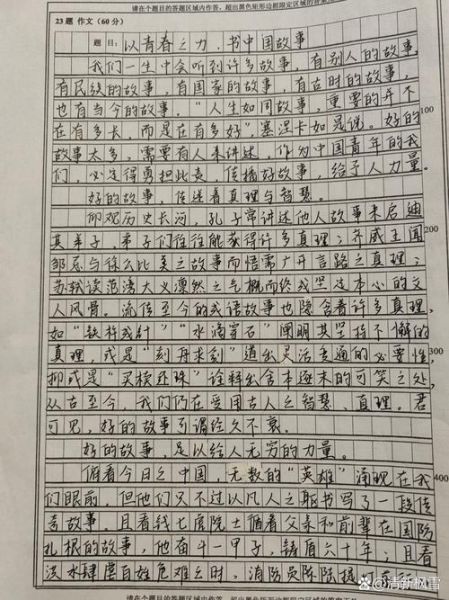 请在个题目的答题区域内作答，超出黑色矩形边框限定区域的答案无效
23题 作文(60分)
题目：以青春之力，书中国故事
我们一生中会听到许多故事，有别人的故事，
有民族的故事，有国家的故事，有古时的故事，
也有当今的故事。“人生如同故事，重要的并不
100
在有多长，而是在有多好”塞涅卡如是说。好的
故事太多，需要有人来讲述，作为中国青年的我
们，必定得勇担此责，传播好故事，给予人力量。
好的故事，传递着真理与智慧。
仰观历史长河，孔子常讲述他人故事来启迪
200
其弟子，弟子们往往能获得许多真理；齐威王闻
邹忌与徐公比美之故事而悟需广开言路之真理；
苏轼读范滂大义凛然之气概而终成坚定本心的文
人风骨。流传至今的成语故事也隐含着许多真理，
如“铁杵成针”“水滴穿石”阐明其坚持不懈的
300
真理，或是“刻舟求剑”道出灵活变通的必要性，
抑或是“买椟还珠”诠释出舍本逐末的可笑之处，
从古至今，我们仍在受用古人之智慧、真理。君
可见，好的故事可谓经久不衰。
好的故事，足以给人无穷的力量。
400
俯看今日之中国，无数的“英雄”涌现在我
们眼前，但他们又不过以凡人之躯书写了一段传
奇故事，且看钱七虎院士循着父亲和前辈在国防
扎根的故事，他奋斗一甲子，铸盾六十年；且看
涉水肆虐百姓危难之时，消防员陈陆
@清新枫雷
请在个题目的答题区域内作答，超出黑色矩形边框限定区域的答案